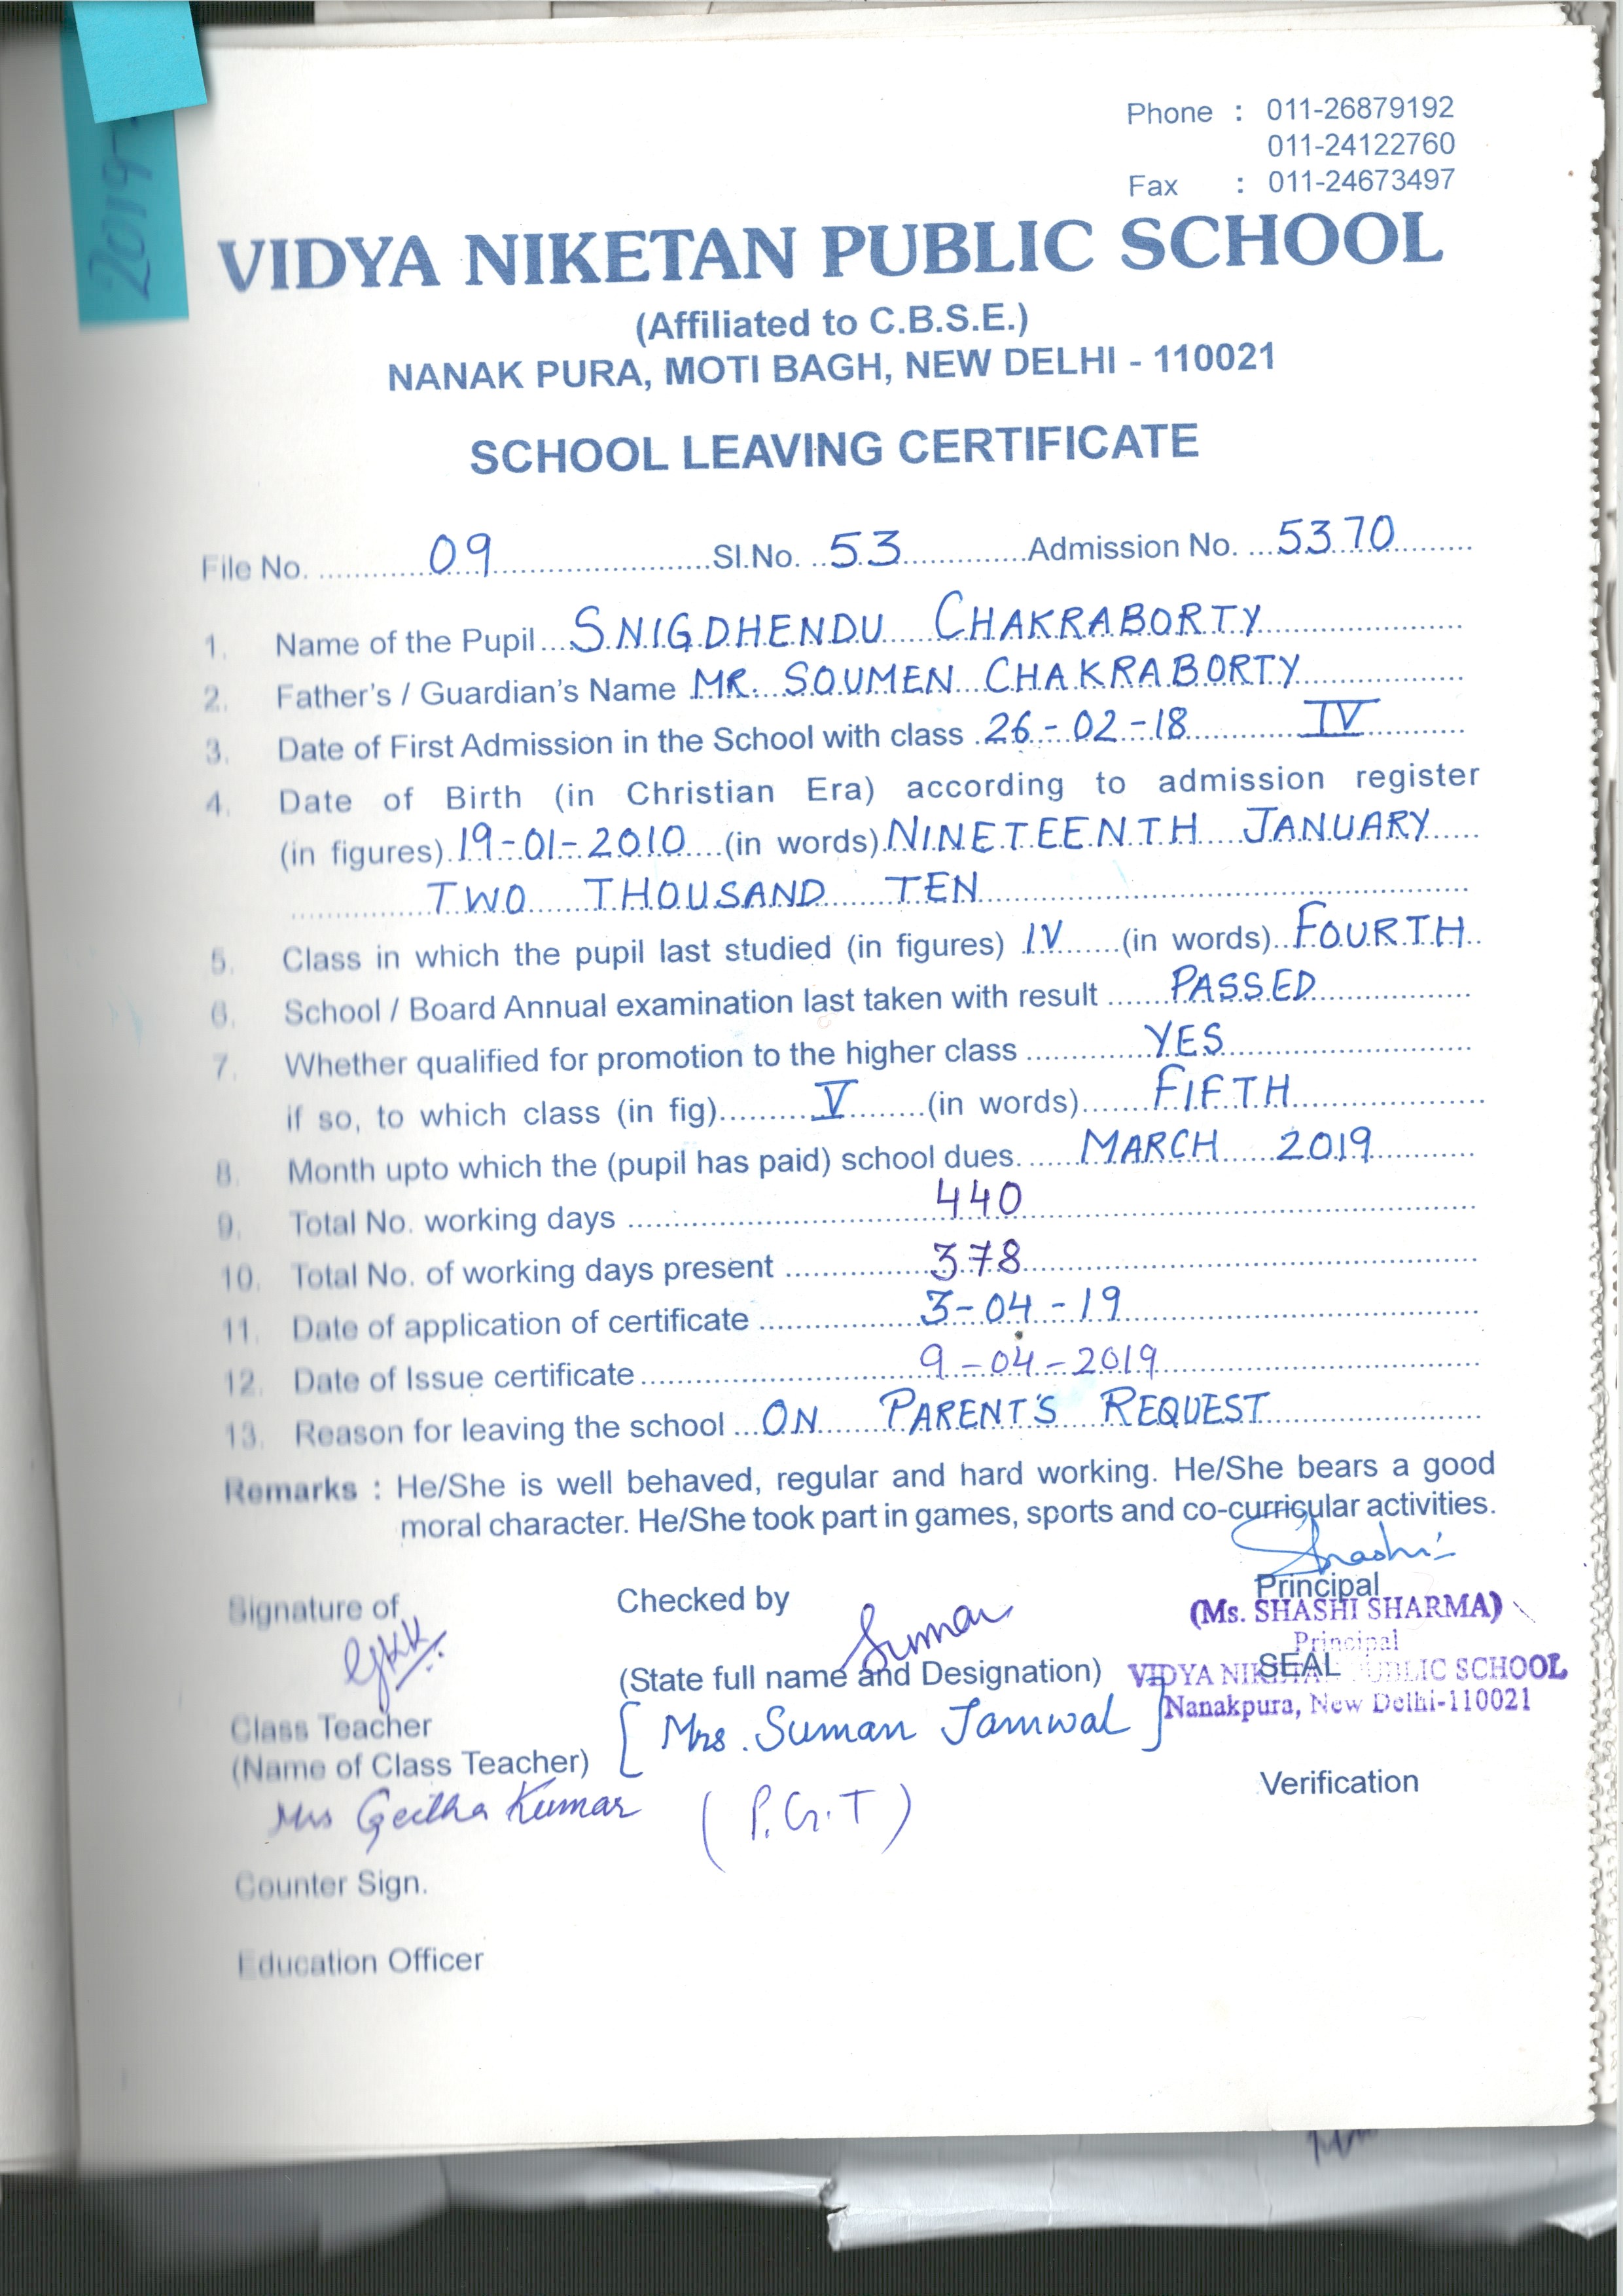 2019-
Phone : 011-26879192
011-24122760
Fax : 011-24673497
VIDYA NIKETAN PUBLIC SCHOOL
(Affiliated to C.B.S.E.)
NANAK PURA, MOTI BAGH, NEW DELHI - 110021
SCHOOL LEAVING CERTIFICATE
File No. 09 Sl.No. 53 Admission No. 5370
1. Name of the Pupil SNIGDHENDU CHAKRABORTY
2. Father's / Guardian's Name MR. SOUMEN CHAKRABORTY
3. Date of First Admission in the School with class 26-02-18 IV
4. Date of Birth (in Christian Era) according to admission register
(in figures) 19-01-2010 (in words) NINETEENTH JANUARY
TWO THOUSAND TEN
5. Class in which the pupil last studied (in figures) IV (in words) FOURTH
6. School / Board Annual examination last taken with result PASSED
7. Whether qualified for promotion to the higher class YES
if so, to which class (in fig) V (in words) FIFTH
8. Month upto which the (pupil has paid) school dues. MARCH 2019
9. Total No. working days 440
10. Total No. of working days present 378
11. Date of application of certificate 3-04-19
12. Date of Issue certificate 9-04-2019
13. Reason for leaving the school ON PARENT'S REQUEST
Remarks : He/She is well behaved, regular and hard working. He/She bears a good
moral character. He/She took part in games, sports and co-curricular activities.
Shashi
Signature of Checked by Principal
Suman (Ms. SHASHI SHARMA)
Principal
(State full name and Designation) SEAL
VIDYA NIKETAN PUBLIC SCHOOL
Nanakpura, New Delhi-110021
Class Teacher [Mrs. Suman Jamwal]
(Name of Class Teacher)
Verification
Mrs Geetha Kumar (P.G.T)
Counter Sign.
Education Officer